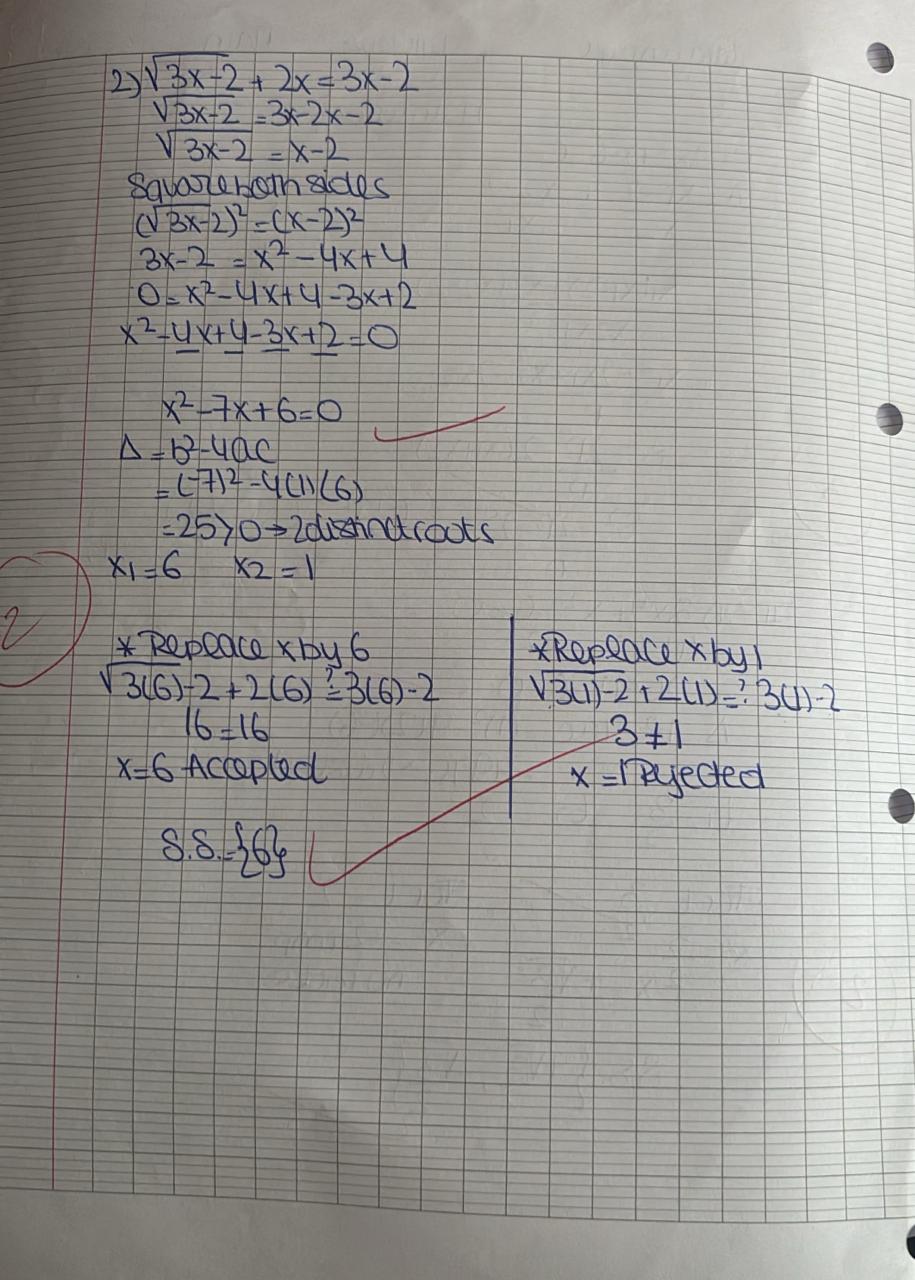 2) √3x-2 + 2x = 3x-2
√3x-2 = 3x-2x-2
√3x-2 = x-2
Square both sides
(√3x-2)² = (x-2)²
3x-2 = x² - 4x + 4
0 = x² - 4x + 4 - 3x + 2
x² - 4x + 4 - 3x + 2 = 0
x² - 7x + 6 = 0
Δ = b² - 4ac
= (-7)² - 4(1)(6)
= 25 > 0 → 2 distinct roots
x1 = 6 x2 = 1
2
* Replace x by 6
√3(6)-2 + 2(6) ?= 3(6)-2
16 = 16
x = 6 Accepted
* Replace x by 1
√3(1)-2 + 2(1) =? 3(1)-2
3 ≠ 1
x = 1 Rejected
S.S. = {6}